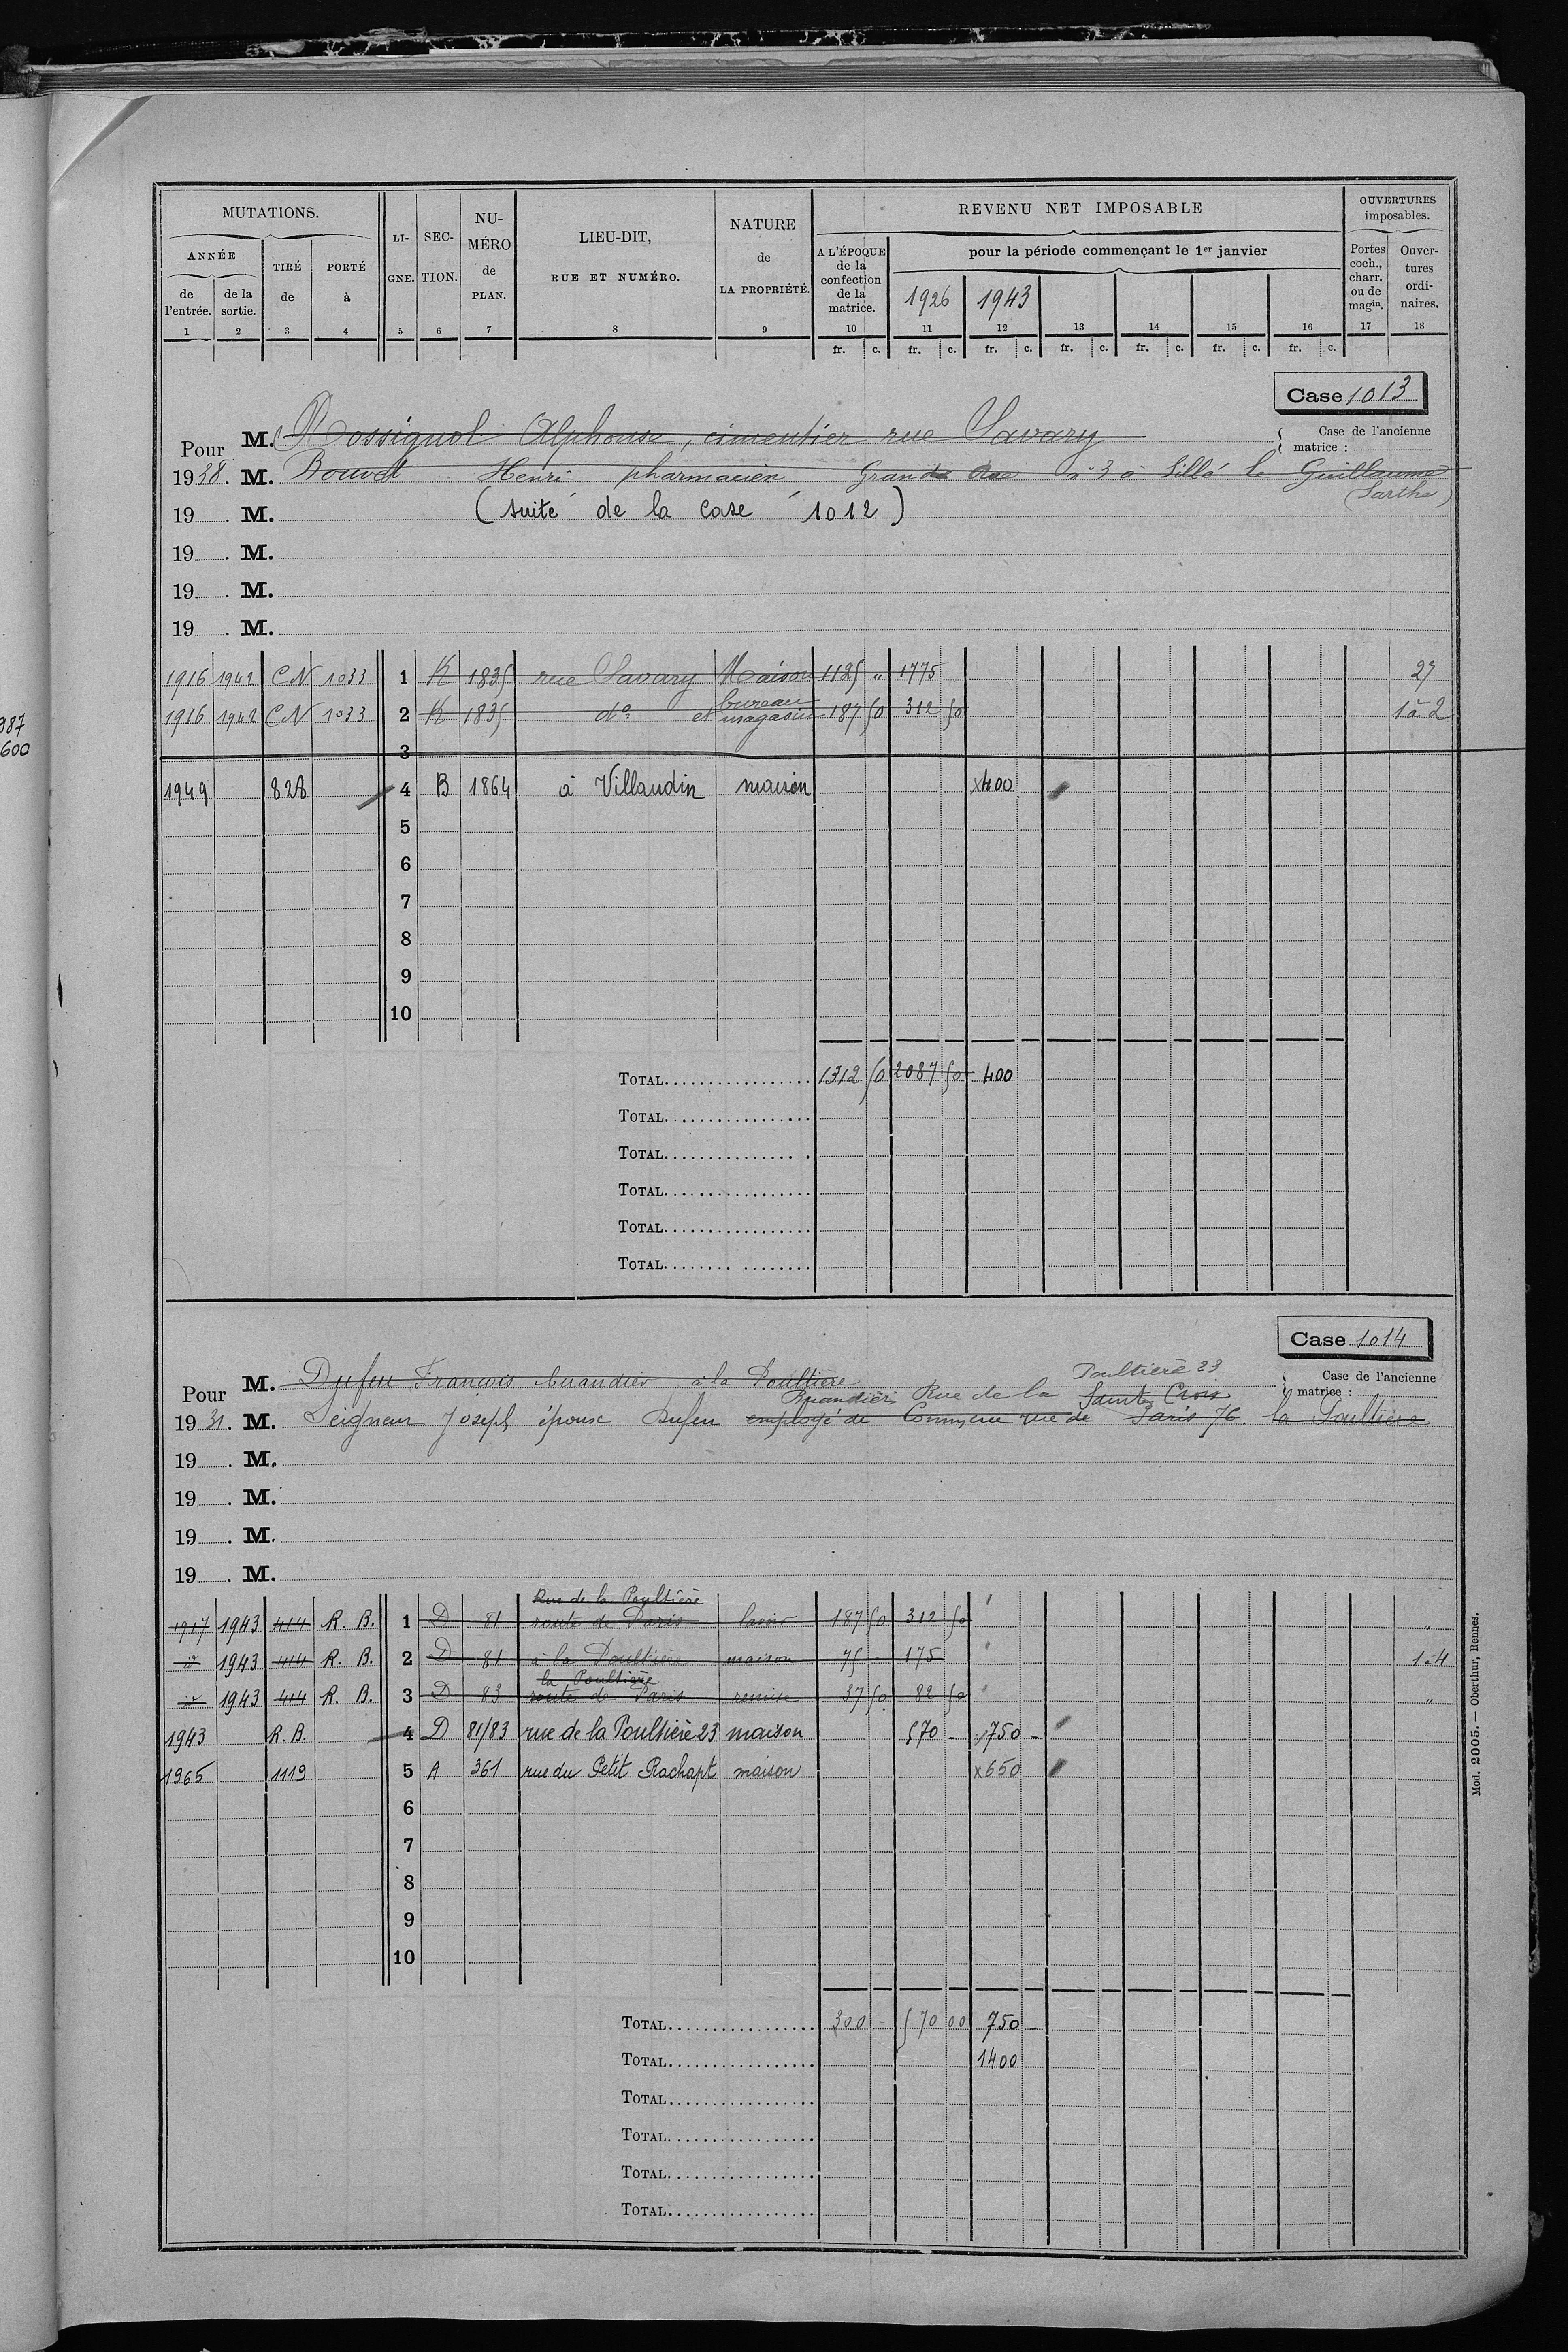 MUTATIONS.
ANNÉE
de l'entrée.
de la sortie.
TIRÉ de
PORTÉ à
LIGNE.
SECTION.
NUMÉRO de PLAN.
LIEU-DIT, RUE ET NUMÉRO.
NATURE de LA PROPRIÉTÉ.
REVENU NET IMPOSABLE
A L'ÉPOQUE de la confection de la matrice.
pour la période commençant le 1er janvier
1926 1943
OUVERTURES imposables.
Portes coch., charr. ou de magin.
Ouvertures ordinaires.
1 2 3 4 5 6 7 8 9 10 11 12 13 14 15 16 17 18
fr. c. fr. c. fr. c. fr. c. fr. c. fr. c. fr. c.
Case 1013
Case de l'ancienne matrice :
Pour M. Rossignol Alphonse, cimentier rue Savary
1938. M. Bouvet Henri pharmacien Grande Rue n° 3 à Sillé le Guillaume
(Sarthe)
19 . M. (suite de la case 1012)
19 . M.
19 . M.
19 . M.
1916 1942 CN 1033 1 K 1835 rue Savary Maison 1125 " 1775 27
1916 1942 CN 1033 2 K 1835 do et bureau magasin 187 50 312 50 1 à 2
987
600
3
1949 828 4 B 1864 à Villaudin maison x400
5
6
7
8
9
10
TOTAL 1312 50 2087 50 400
TOTAL
TOTAL
TOTAL
TOTAL
TOTAL
Case 1014
Case de l'ancienne matrice :
Pour M. Dufeu François buandier à la Poultière
Buandier Rue de la Sainte Croix Poultière 23
1931. M. Seigneur Joseph époux Dufeu employé de Commerce rue de Paris 76 la Poultière
19 . M.
19 . M.
19 . M.
19 . M.
Rue de la Poultière
1917 1943 414 R. B. 1 D 81 route de Paris lavoir 187 50 312 50 "
d° 1943 414 R. B. 2 D 81 à la Poultière maison 75 - 175 1 à 4
la Poultière
d° 1943 414 R. B. 3 D 83 route de Paris remise 37 50 82 50 "
1943 R.B. 4 D 81/83 rue de la Poultière 23 maison 570 - 750 -
1965 1119 5 A 361 rue du Petit Rachapt maison x650
6
7
8
9
10
TOTAL 300 - 570 00 750 -
TOTAL 1400
TOTAL
TOTAL
TOTAL
TOTAL
Mod. 2005. — Oberthur, Rennes.